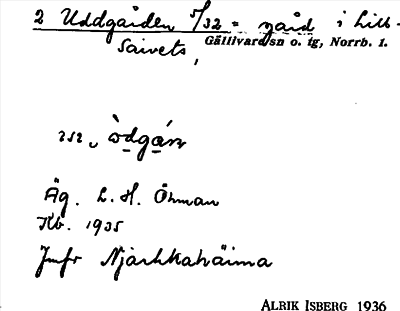 2 Uddgården 5/32 = gård i Lill-
Saivets,
Gällivare sn o. tg, Norrb. l.
Äg. L. H. Öhman
Kb. 1935
Jmfr Njarkkahäima
ALRIK ISBERG 1936